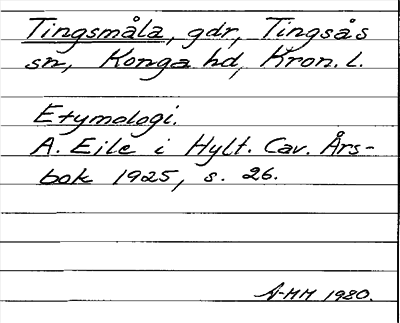 Tingsmåla, gdr, Tingsås
sn, Konga hd, Kron. l.
Etymologi.
A. Eile i Hylt. Cav. Års-
bok 1925, s. 26.
A-MM 1980.